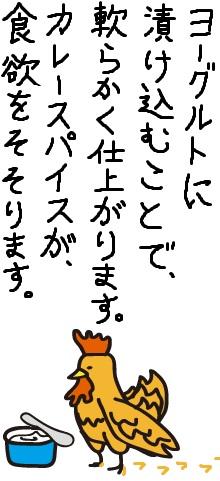 ヨーグルトに
漬け込むことで、
軟らかく仕上がります。
カレースパイスが、
食欲をそそります。